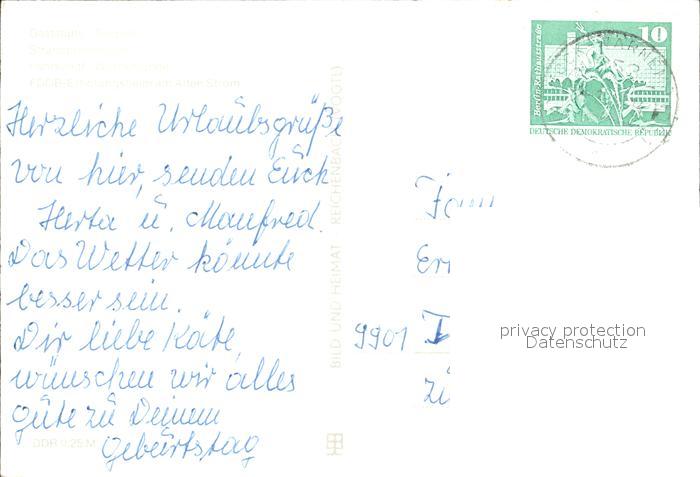 FDGB-Erholungsheim am Alten Strom
Herzliche Urlaubsgrüße
von hier, senden Euch
Herta u. Manfred.
Das Wetter könnte
besser sein.
Dir liebe Käte,
wünschen wir alles
gute zu Deinem
Geburtstag
DDR 0,25 M
BILD UND HEIMAT REICHENBACH (VOGTL)
10
Berlin, Rathausstraße
DEUTSCHE DEMOKRATISCHE REPUBLIK
9901
privacy protection
Datenschutz